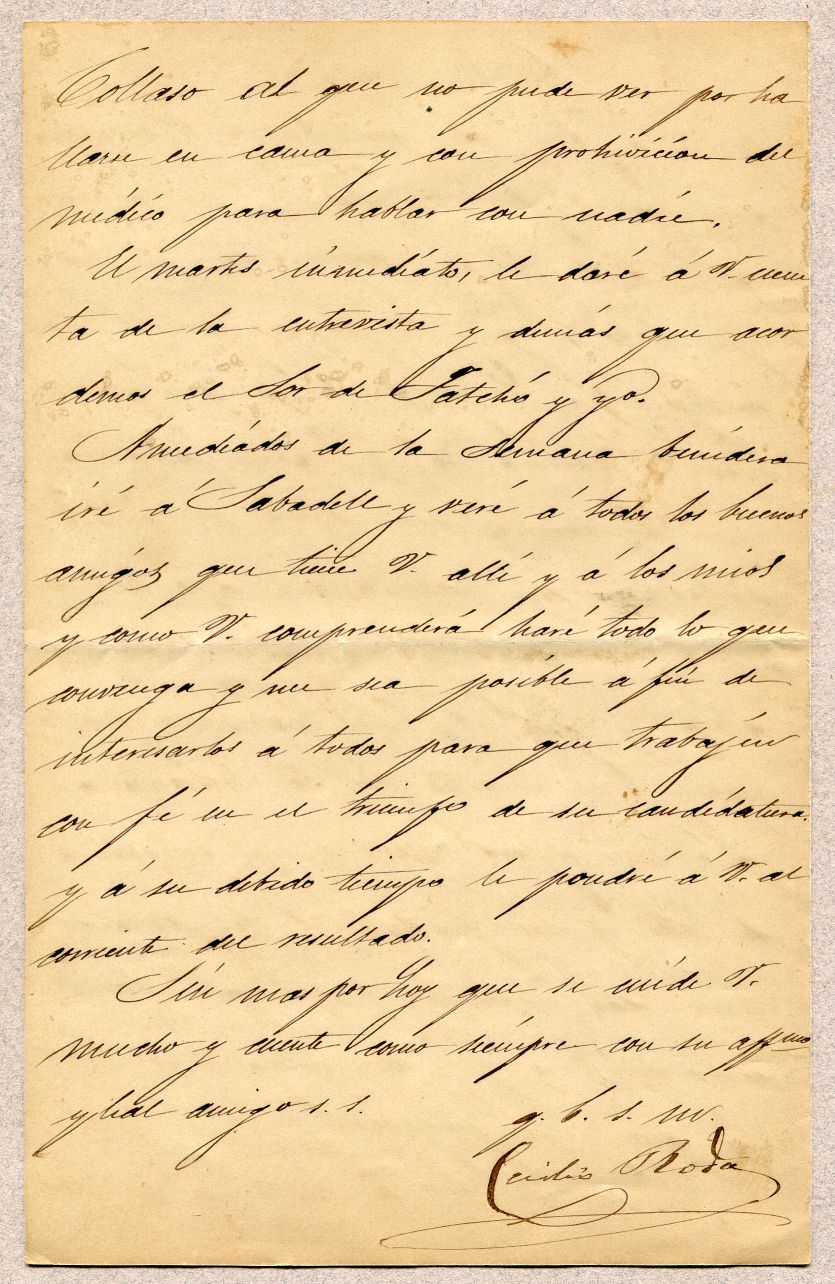 Collaso al que no pude ver por ha
llarse en cama y con prohivicion del
médico para hablar con nadie.
El martes inmediato, le daré á V. cuen
ta de la entrevista y demás que acor
demos el Sor de Fatchó y yo.
Amediados de la semana benidera
iré á Sabadell y veré á todos los buenos
amigos que tiene V. allí y á los mios
y como V. comprenderá haré todo lo que
convenga y me sea posible á fin de
interesarlos á todos para que trabajen
con fé en el triunfo de su candidatura.
y á su debido tiempo le pondré á V. al
corriente del resultado.
Sin mas por hoy que se cuide V.
mucho y cuente como siempre con su affmo
y leal amigo s. s.
q. b. s. m.
Roda